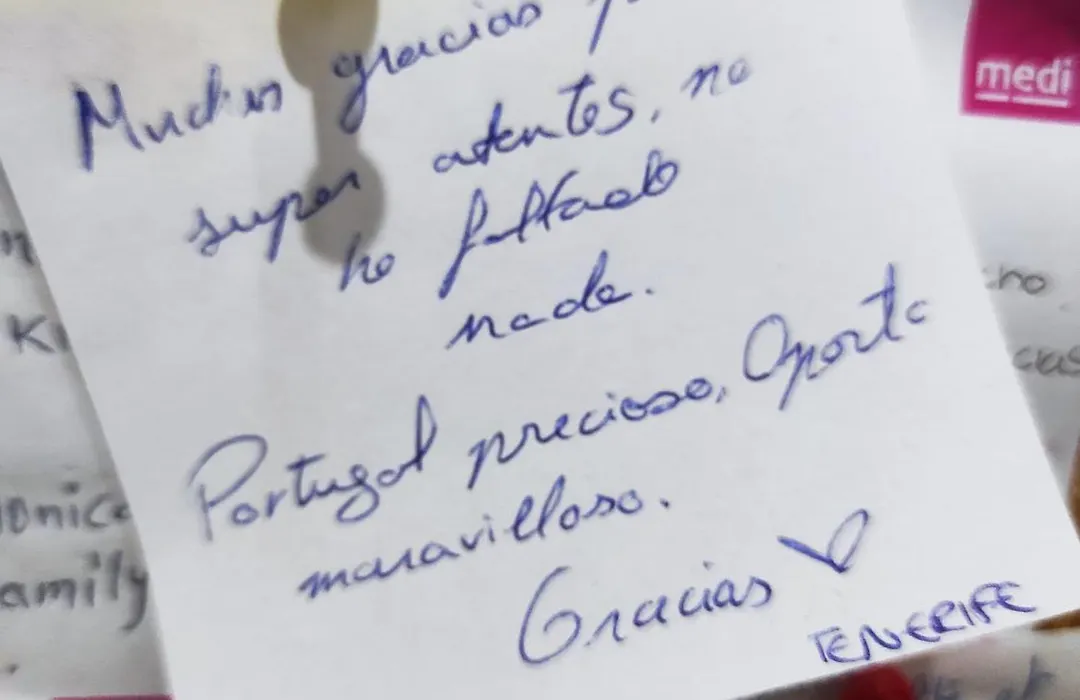 Muchas gracias p
super atentes, no
ha faltado
nada.
Portugal precioso, Oporto
maravilloso.
Gracias ♡
TENERIFE
medi
cho
cias
Ki
onica
amily